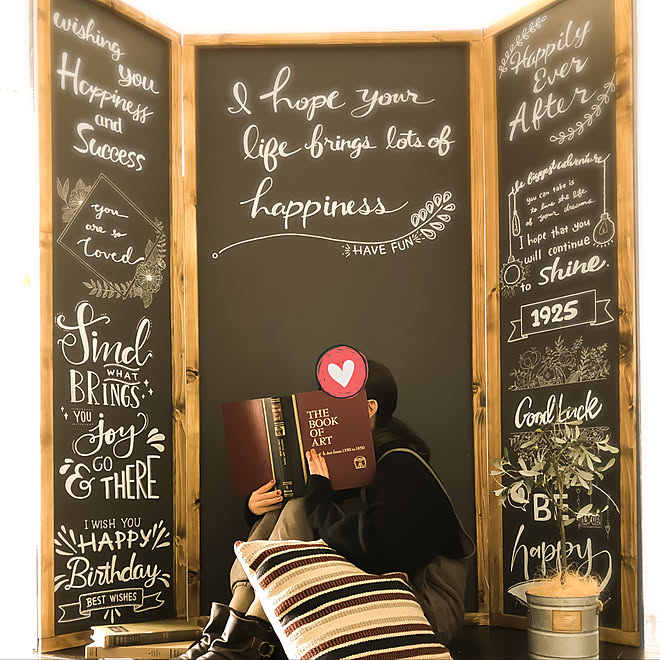 wishing
you
Happiness
and
Success
you
are so
loved
Find
WHAT
BRINGS
YOU
joy
GO
& THERE
I WISH YOU
HAPPY
Birthday
BEST WISHES
I hope your
life brings lots of
happiness
HAVE FUN
THE
BOOK
OF
ART
Happily
Ever
After
the biggest adventure
you can take is
to live the life
of your dreams.
I hope that you
will continue
to Shine.
1925
Good luck
BE
happy